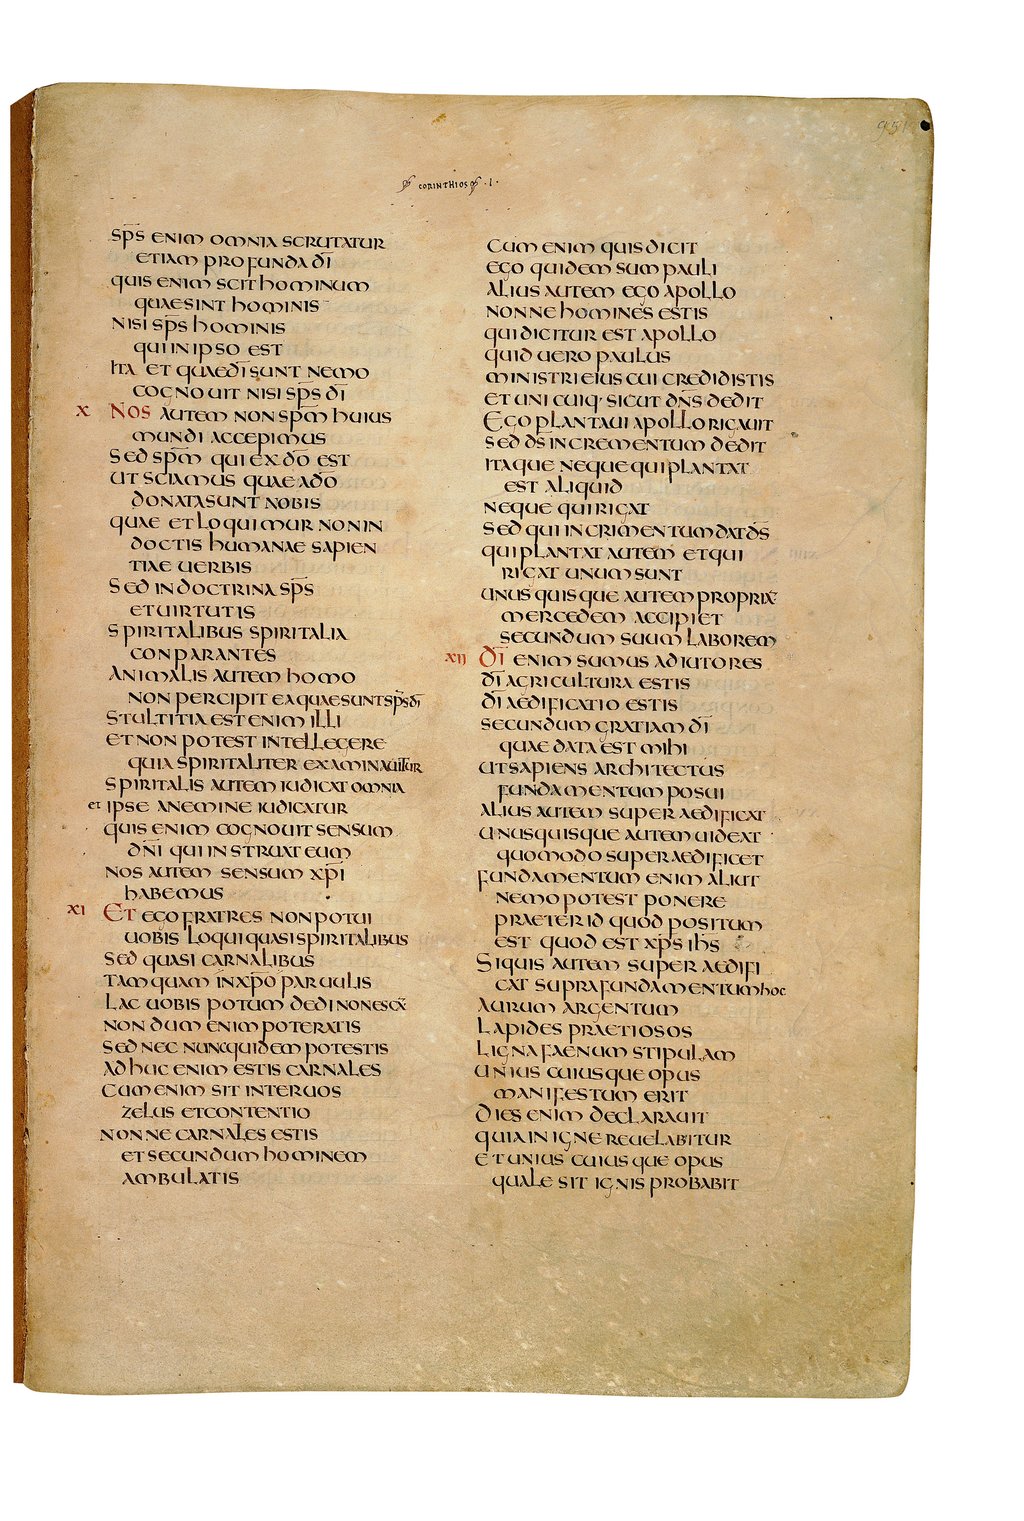 951
CORINTHIOS · I ·
SP̄S ENIM OMNIA SCRUTATUR
ETIAM PROFUNDA D̄I
QUIS ENIM SCIT HOMINUM
QUAE SINT HOMINIS
NISI SP̄S HOMINIS
QUI IN IPSO EST
ITA ET QUAE D̄I SUNT NEMO
COGNOUIT NISI SP̄S D̄I
X NOS AUTEM NON SP̄M HUIUS
MUNDI ACCEPIMUS
SED SP̄M QUI EX D̄O EST
UT SCIAMUS QUAE A D̄O
DONATA SUNT NOBIS
QUAE ET LOQUIMUR NON IN
DOCTIS HUMANAE SAPIEN
TIAE UERBIS
SED IN DOCTRINA SP̄S
ET UIRTUTIS
SPIRITALIBUS SPIRITALIA
CONPARANTES
ANIMALIS AUTEM HOMO
NON PERCIPIT EA QUAE SUNT SP̄S D̄I
STULTITIA EST ENIM ILLI
ET NON POTEST INTELLEGERE
QUIA SPIRITALITER EXAMINAUITUR
SPIRITALIS AUTEM IUDICAT OMNIA
et IPSE A NEMINE IUDICATUR
QUIS ENIM COGNOUIT SENSUM
D̄N̄I QUI INSTRUAT EUM
NOS AUTEM SENSUM XP̄I
HABEMUS
XI ET EGO FRATRES NON POTUI
UOBIS LOQUI QUASI SPIRITALIBUS
SED QUASI CARNALIBUS
TAMQUAM IN XP̄O PARUULIS
LAC UOBIS POTUM DEDI NON ESCĀ
NONDUM ENIM POTERATIS
SED NEC NUNC QUIDEM POTESTIS
ADHUC ENIM ESTIS CARNALES
CUM ENIM SIT INTER UOS
ZELUS ET CONTENTIO
NONNE CARNALES ESTIS
ET SECUNDUM HOMINEM
AMBULATIS
CUM ENIM QUIS DICIT
EGO QUIDEM SUM PAULI
ALIUS AUTEM EGO APOLLO
NONNE HOMINES ESTIS
QUI DICITUR EST APOLLO
QUID UERO PAULUS
MINISTRI EIUS CUI CREDIDISTIS
ET UNI CUIQ· SICUT D̄N̄S DEDIT
EGO PLANTAUI APOLLO RIGAUIT
SED D̄S INCREMENTUM DEDIT
ITAQUE NEQUE QUI PLANTAT
EST ALIQUID
NEQUE QUI RIGAT
SED QUI INCRIMENTUM DAT D̄S
QUI PLANTAT AUTEM ET QUI
RIGAT UNUM SUNT
UNUSQUISQUE AUTEM PROPRIĀ
MERCEDEM ACCIPIET
SECUNDUM SUUM LABOREM
XII D̄I ENIM SUMUS ADIUTORES
D̄I AGRICULTURA ESTIS
D̄I AEDIFICATIO ESTIS
SECUNDUM GRATIAM D̄I
QUAE DATA EST MIHI
UT SAPIENS ARCHITECTUS
FUNDAMENTUM POSUI
ALIUS AUTEM SUPERAEDIFICAT
UNUSQUISQUE AUTEM UIDEAT
QUOMODO SUPERAEDIFICET
FUNDAMENTUM ENIM ALIUT
NEMO POTEST PONERE
PRAETER ID QUOD POSITUM
EST QUOD EST XP̄S IH̄S
SI QUIS AUTEM SUPERAEDIFI
CAT SUPRA FUNDAMENTUM hoc
AURUM ARGENTUM
LAPIDES PRAETIOSOS
LIGNA FAENUM STIPULAM
UNIUSCUIUSQUE OPUS
MANIFESTUM ERIT
DIES ENIM DECLARAUIT
QUIA IN IGNE REUELABITUR
ET UNIUSCUIUSQUE OPUS
QUALE SIT IGNIS PROBABIT